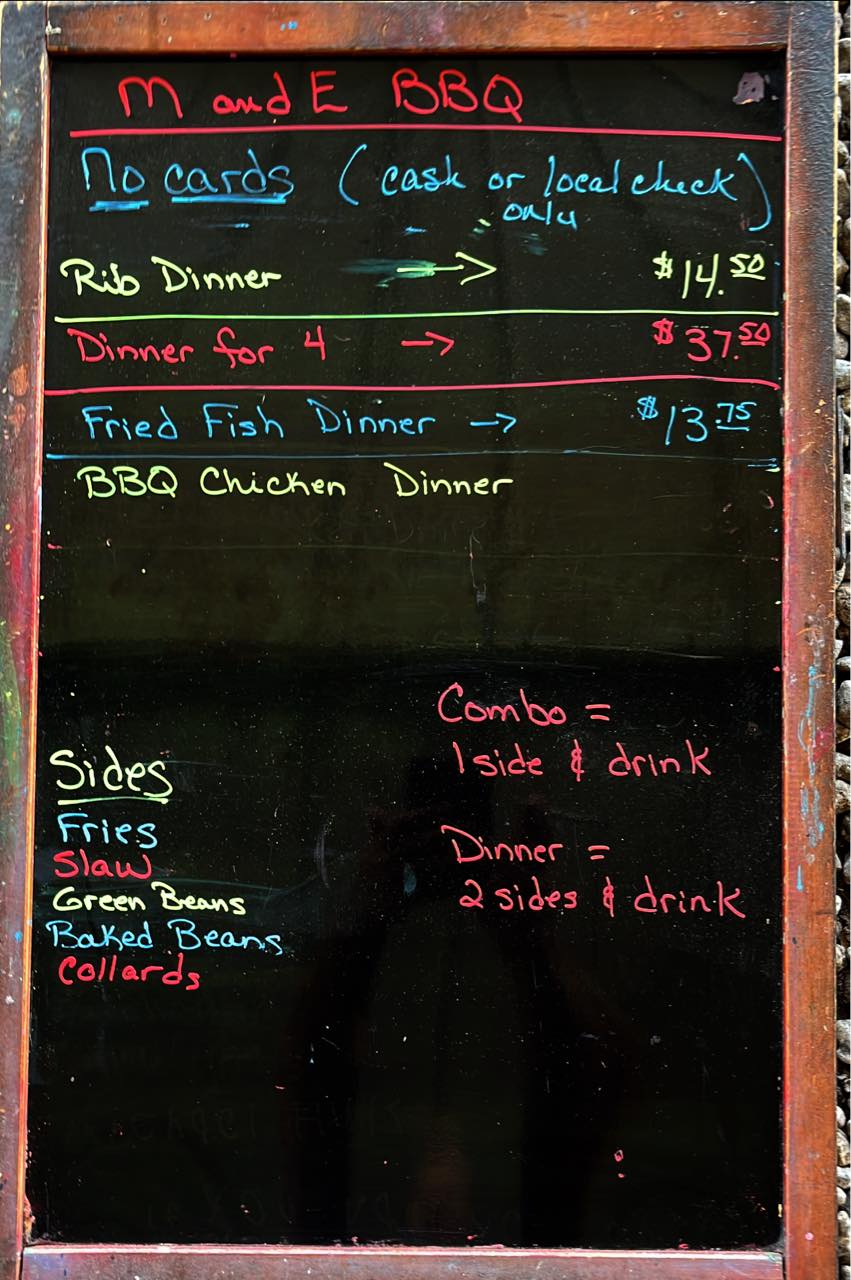 M and E BBQ
No cards (cash or local check)
only
Rib Dinner → $14.50
Dinner for 4 → $37.50
Fried Fish Dinner → $13.75
BBQ Chicken Dinner
Combo =
1 side & drink
Sides
Fries
Slaw
Green Beans
Baked Beans
Collards
Dinner =
2 sides & drink